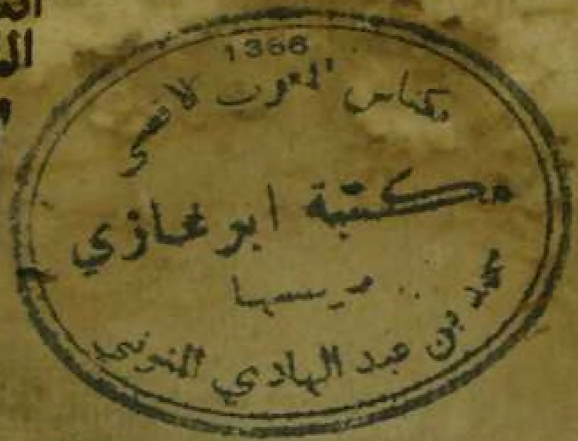 1366
بمكناس المغرب الاقصى
مكتبة ابو غازي
مؤسسها
محمد بن عبد الهادي المنوني